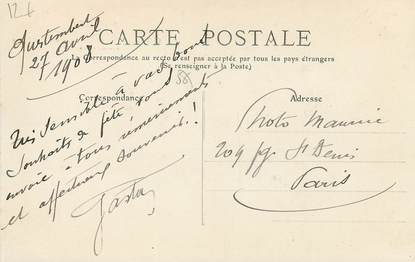 12f
Questembert
27 avril
1908
CARTE POSTALE
La Correspondance au recto n'est pas acceptée par tous les pays étrangers
(Se renseigner à la Poste)
58
Correspondance
Adresse
Très sensible à vos bons
souhaits de fête, vous
envoie à tous remerciements
et affectueux souvenirs!
Photo Maurice
209 fg St Denis
Paris